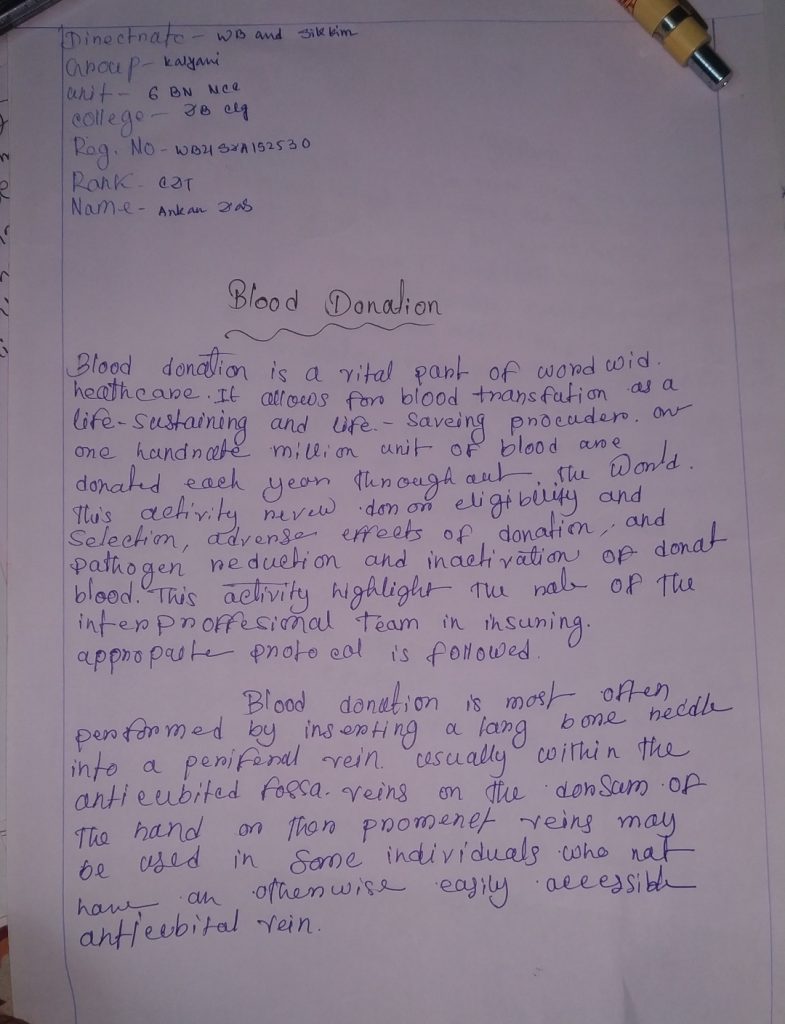 Directrate - WB and Sikkim
Group - Kalyani
unit - 6 BN NCC
college - JB clg
Reg. No - WB21SDA152530
Rank - CDT
Name - Ankan Das
Blood Donation
Blood donation is a vital part of word wid.
heathcare. It allows for blood transfution as a
life-sustaining and life - saveing procuders. ovr
one handrate million unit of blood are
donated each year through out. the World.
This activity revew donor eligibility and
Selection, adverse effects of donation, and
pathogen reduction and inactivation of donat
blood. This activity highlight The role of the
interproffesional Team in insuring.
appropate protocal is followed.
Blood donation is most often
performed by inserting a larg bore neddle
into a periferal vein. usually within the
anticubited fossa. veins on the dorsam of
The hand or thor promenet veins may
be used in some individuals who nat
have an otherwise easily accessible
anticubital vein.